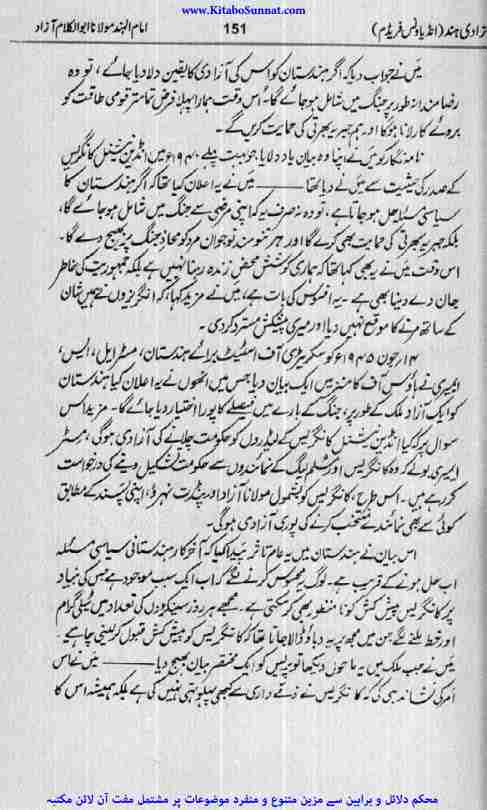 www.KitaboSunnat.com
زادی ہند (انڈیا ونس فریڈم) 151 امام الہند مولانا ابوالکلام آزاد
میں نے جواب دیا کہ اگر ہندستان کو اس کی آزادی کا یقین دلا دیا جائے، تو وہ
رضامندانہ طور پر جنگ میں شامل ہو جائے گا۔ اُس وقت ہمارا پہلا فرض تمام تر قومی طاقت کو
بروئے کار لانا ہوگا اور ہم جبریہ بھرتی کی حمایت کریں گے۔
نامہ نگار کو میں نے اپنا وہ بیان یاد دلایا جو بہت پہلے ۱۹۴۰ء میں انڈین نیشنل کانگریس
کے صدر کی حیثیت سے میں نے دیا تھا ——— میں نے یہ اعلان کیا تھا کہ اگر ہندستان کا
سیاسی مسئلہ حل ہو جاتا ہے، تو وہ نہ صرف یہ کہ اپنی مرضی سے جنگ میں شامل ہو جائے گا،
بلکہ جبریہ بھرتی کی حمایت بھی کرے گا اور ہر تنومند نوجوان مرد کو محاذِ جنگ پر بھیج دے گا۔
اس وقت میں نے یہ بھی کہا تھا کہ ہماری کوشش محض زندہ رہنا نہیں ہے بلکہ جمہوریت کی خاطر
جان دے دینا بھی ہے۔ یہ افسوس کی بات ہے، میں نے مزید کہا، کہ انگریزوں نے ہمیں شان
کے ساتھ مرنے کا موقع نہیں دیا اور میری پیشکش مسترد کر دی۔
۱۴ر جون ۱۹۴۵ء کو سکریٹری آف اسٹیٹ برائے ہندستان، مسٹر ایل، ایس،
ایمیری نے ہاؤس آف کامنز میں ایک بیان دیا جس میں انھوں نے یہ اعلان کیا ہندستان
کو ایک آزاد ملک کے طور پر، جنگ کے بارے میں فیصلے کا پورا اختیار دیا جائے گا۔ مزید اس
سوال پر کہ کیا انڈین نیشنل کانگریس کے لیڈروں کو حکومت چلانے کی آزادی ہوگی، مسٹر
ایمیری بولے کہ وہ کانگریس اور مسلم لیگ کے نمائندوں سے حکومت تشکیل دینے کی درخواست
کر رہے ہیں۔ اس طرح، کانگریس کو بشمول مولانا آزاد اور پنڈت نہرو، اپنی پسند کے مطابق
کوئی سے بھی نمائندے منتخب کرنے کی پوری آزادی ہوگی۔
اس بیان نے ہندستان میں یہ عام تاثر پیدا کیا کہ آخر کار ہندستانی سیاسی مسئلہ
اب حل ہونے کے قریب ہے۔ لوگ یہ محسوس کرنے لگے کہ اب ایک سبب موجود ہے جس کی بنیاد
پر کانگریس پیش کش کو نامنظور بھی کر سکتی ہے۔ مجھے ہر روز سینکڑوں کی تعداد میں ٹیلی گرام
اور خط ملنے لگے جن میں مجھ پر یہ دباؤ ڈالا جاتا تھا کہ کانگریس کو پیش کش قبول کر لینی چاہیے۔
میں نے جب ملک میں یہ ماحول دیکھا تو پریس کو ایک مختصر بیان بھیج دیا ——— میں نے اس
امر کی نشاندہی کی کہ کانگریس نے ذمے داری سے کبھی پہلو تہی نہیں کی ہے بلکہ ہمیشہ اس کا
محکم دلائل و براہین سے مزین متنوع و منفرد موضوعات پر مشتمل مفت آن لائن مکتبہ